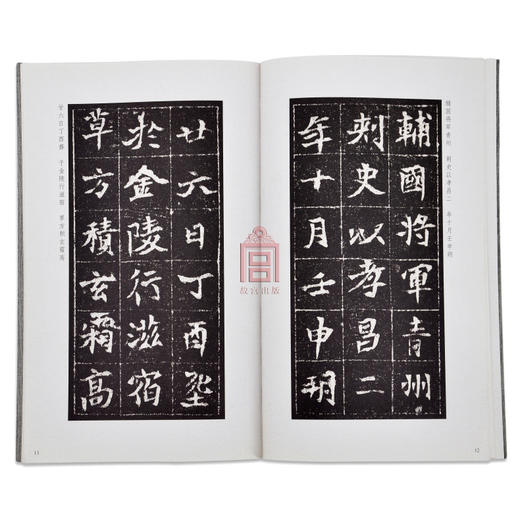 輔國將軍青州 刺史以孝昌二 年十月壬申朔
輔國將軍青州
刺史以孝昌二
年十月壬申朔
12
廿六日丁酉塟
於金陵行滋宿
草方積玄霜高
廿六日丁酉葬 于金陵行滋宿 草方積玄霜高
13
故宫出版